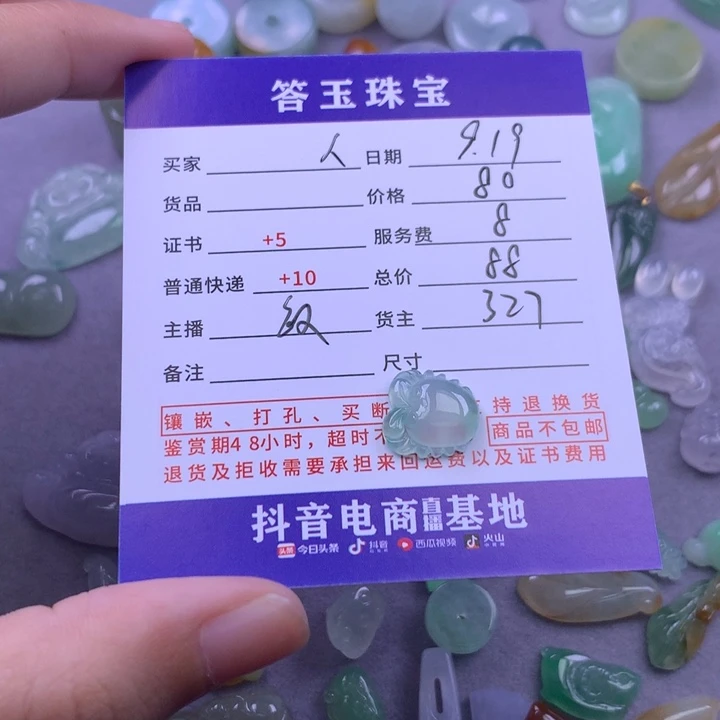 答玉珠宝
买家 人 日期 9.19
货品 价格 80
证书 +5 服务费 8
普通快递 +10 总价 88
主播 货主 327
备注 尺寸
镶嵌、打孔、买断 持退换货
鉴赏期48小时，超时不 商品不包邮
退货及拒收需要承担来回运费以及证书费用
抖音电商直播基地
头条 今日头条 抖音 西瓜视频 火山